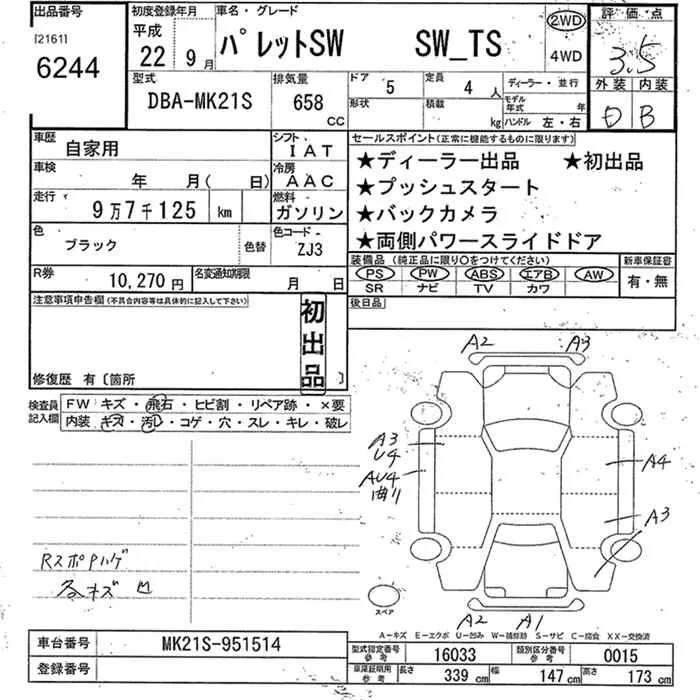 出品番号 初度登録年月 車名・グレード 評価点
[2161] 平成 パレットSW SW_TS 2WD 3.5
6244 22 9月 4WD
型式 排気量 ドア 5 定員 4人 ディーラー・並行 外装 内装
DBA-MK21S 658 CC 形状 積載 kg モデル年式 年 ハンドル 左・右 D B
車歴 自家用 シフト IAT セールスポイント(正常に機能するものに限ります)
車検 年 月( 日) 冷房 AAC ★ディーラー出品 ★初出品
走行 9万7千125 km 燃料 ガソリン ★プッシュスタート
★バックカメラ
色 ブラック 色替 色コード ZJ3 ★両側パワースライドドア
装備品(純正品に限り○をつけてください) 新車保証書
R券 10,270円 名変通知期限 月 日 PS PW ABS エアB AW 有・無
SR ナビ TV カワ
注意事項申告欄(不具合内容等は具体的に記入して下さい) 初出品 後日品
修復歴 有〔箇所 〕
検査員記入欄 FW キズ・飛石・ヒビ割・リペア跡・×要
内装・キズ・汚レ・コゲ・穴・スレ・キレ・破レ
A2 A3
A3
U4 A4
AU4
曲り A3
RスポPハゲ
各キズ 凹
スペア
A2 A1
A-キズ E-エクボ U-凹み W-補修跡 S-サビ C-腐食 XX-交換済
車台番号 MK21S-951514 型式指定番号 参考 16033 類別区分番号 参考 0015
登録番号 車庫証明用 参考 長さ 339 cm 幅 147 cm 高さ 173 cm